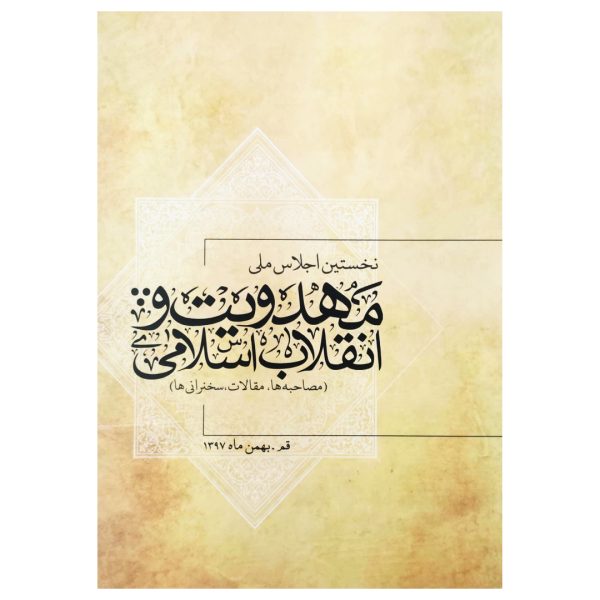 نخستین اجلاس ملی
مهدویت و
انقلاب اسلامی
(مصاحبه‌ها، مقالات، سخنرانی‌ها)
قم . بهمن ماه ۱۳۹۷